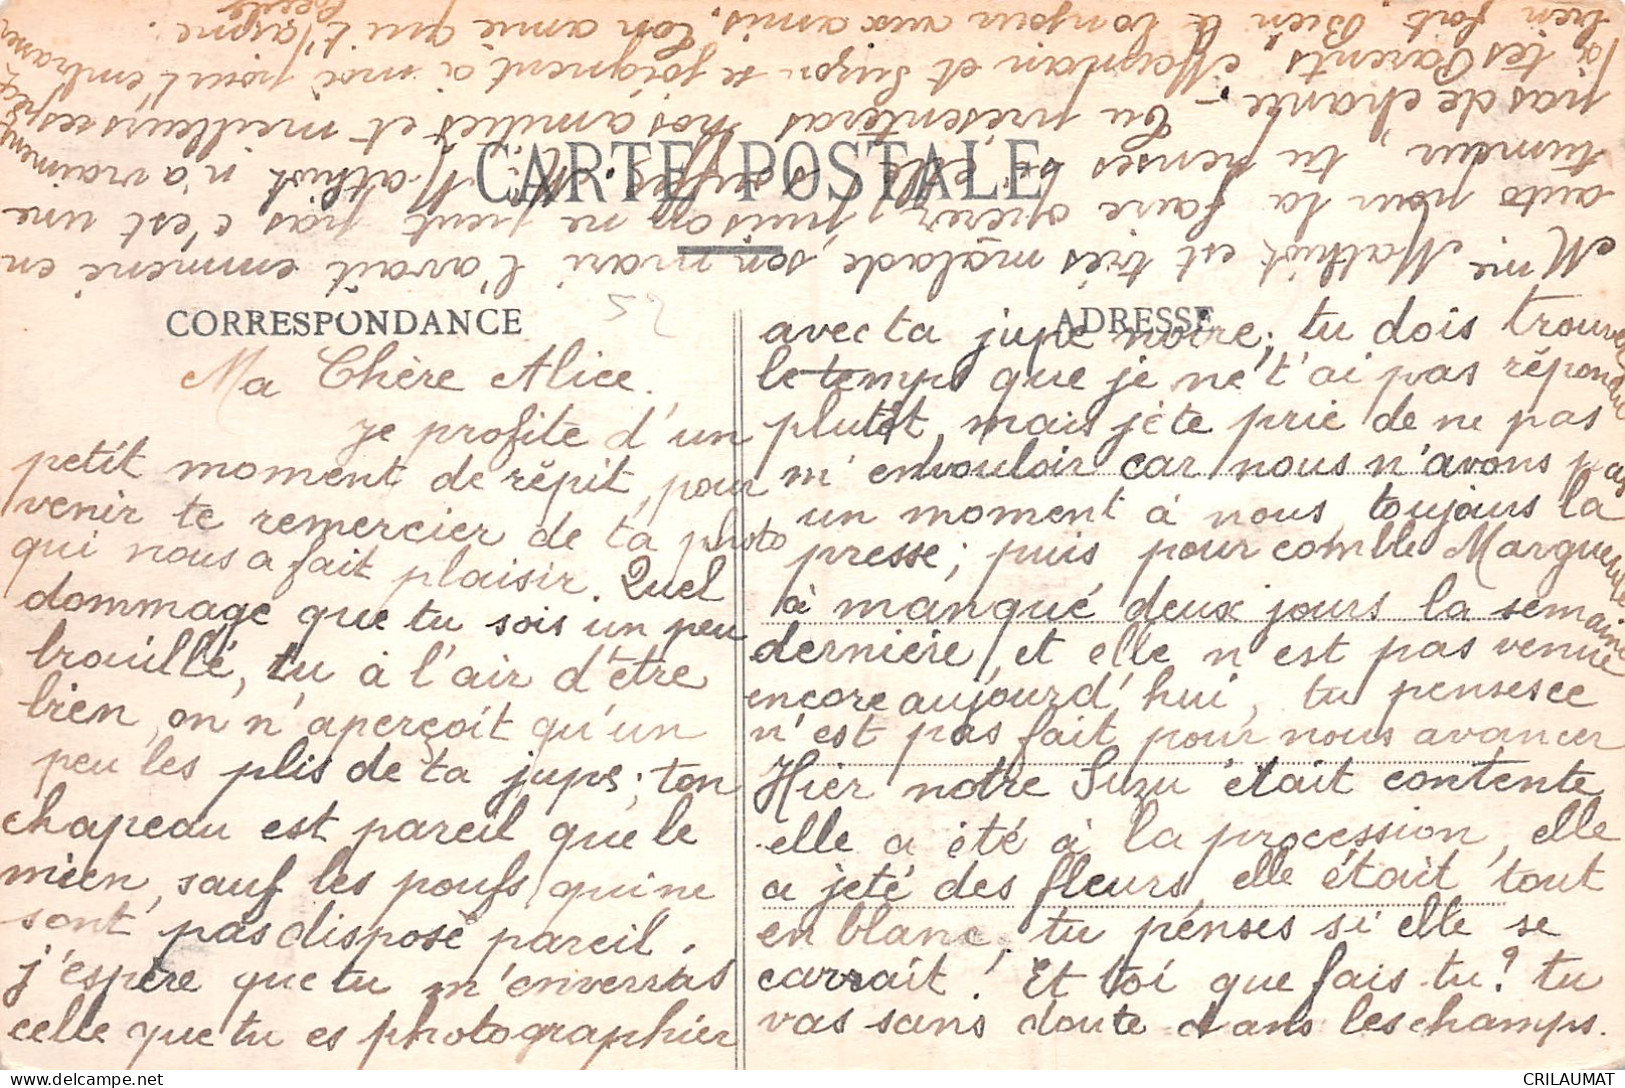 CARTE POSTALE
CORRESPONDANCE
ADRESSE
52
Ma Chère Alice.
je profite d'un
petit moment de répit, pour
venir te remercier de ta photo
qui nous a fait plaisir. Quel
dommage que tu sois un peu
brouillé, tu à l'air d'être
bien, on n'aperçoit qu'un
peu les plis de ta jupe; ton
chapeau est pareil que le
mien, sauf les poufs qui ne
sont pas disposé pareil.
j'espère que tu m'enverras
celle que tu es photographier
avec ta jupe noire; tu dois trouver
le temps que je ne t'ai pas répondu
plutôt, mais je te prie de ne pas
m'envouloir car nous n'avons pas
un moment à nous, toujours la
presse; puis pour comble Marguerite
à manqué deux jours la semaine
dernière, et elle n'est pas venue
encore aujourd'hui, tu penses ce
n'est pas fait pour nous avancer
Hier notre Suzu était contente
elle a été à la procession, elle
a jeté des fleurs, elle était tout
en blanc, tu penses si elle se
carrait! Et toi que fais tu? tu
vas sans doute dans les champs.
Mme Mathiot est très malade, son mari l'avait emmené en
auto pour la faire opérer, puis on ne peut pas c'est une
tumeur, tu penses si elle souffre. M. Mathiot n'a vraiment
pas de chance - Tu présenteras nos amitiés et meilleurs respects
à tes Parents, Maman et Suzon se joignent à moi pour t'embrasser
bien fort. Bien le bonjour aux amis. Ton amie qui t'aime.
Cécile
CRILAUMAT